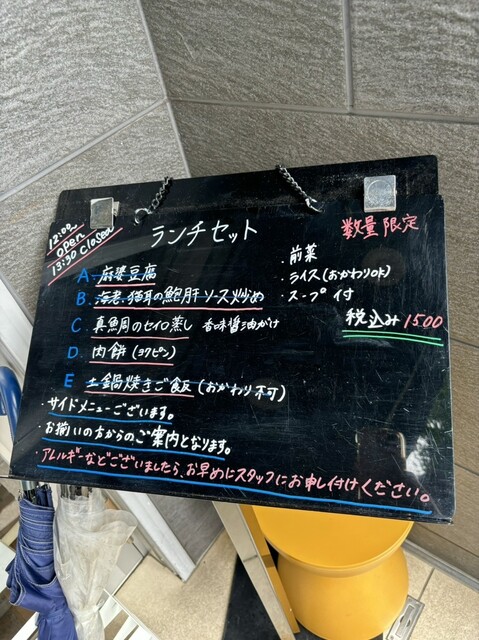 12:00 open
13:30 Closed
ランチセット
数量限定
A. 麻婆豆腐
B. 海老、猫耳の鮑肝ソース炒め
C. 真鯛のセイロ蒸し 香味醤油がけ
D. 肉餅(ヨウピン)
E 土鍋焼きご飯(おかわり不可)
・前菜
・ライス(おかわりok)
・スープ付
税込み1500
・サイドメニューございます。
・お揃いの方からのご案内となります。
・アレルギーなどございましたら、お早めにスタッフにお申し付けください。